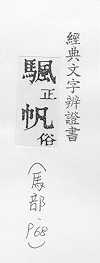 經典文字辨證書
颿正
帆俗
（馬部·968）